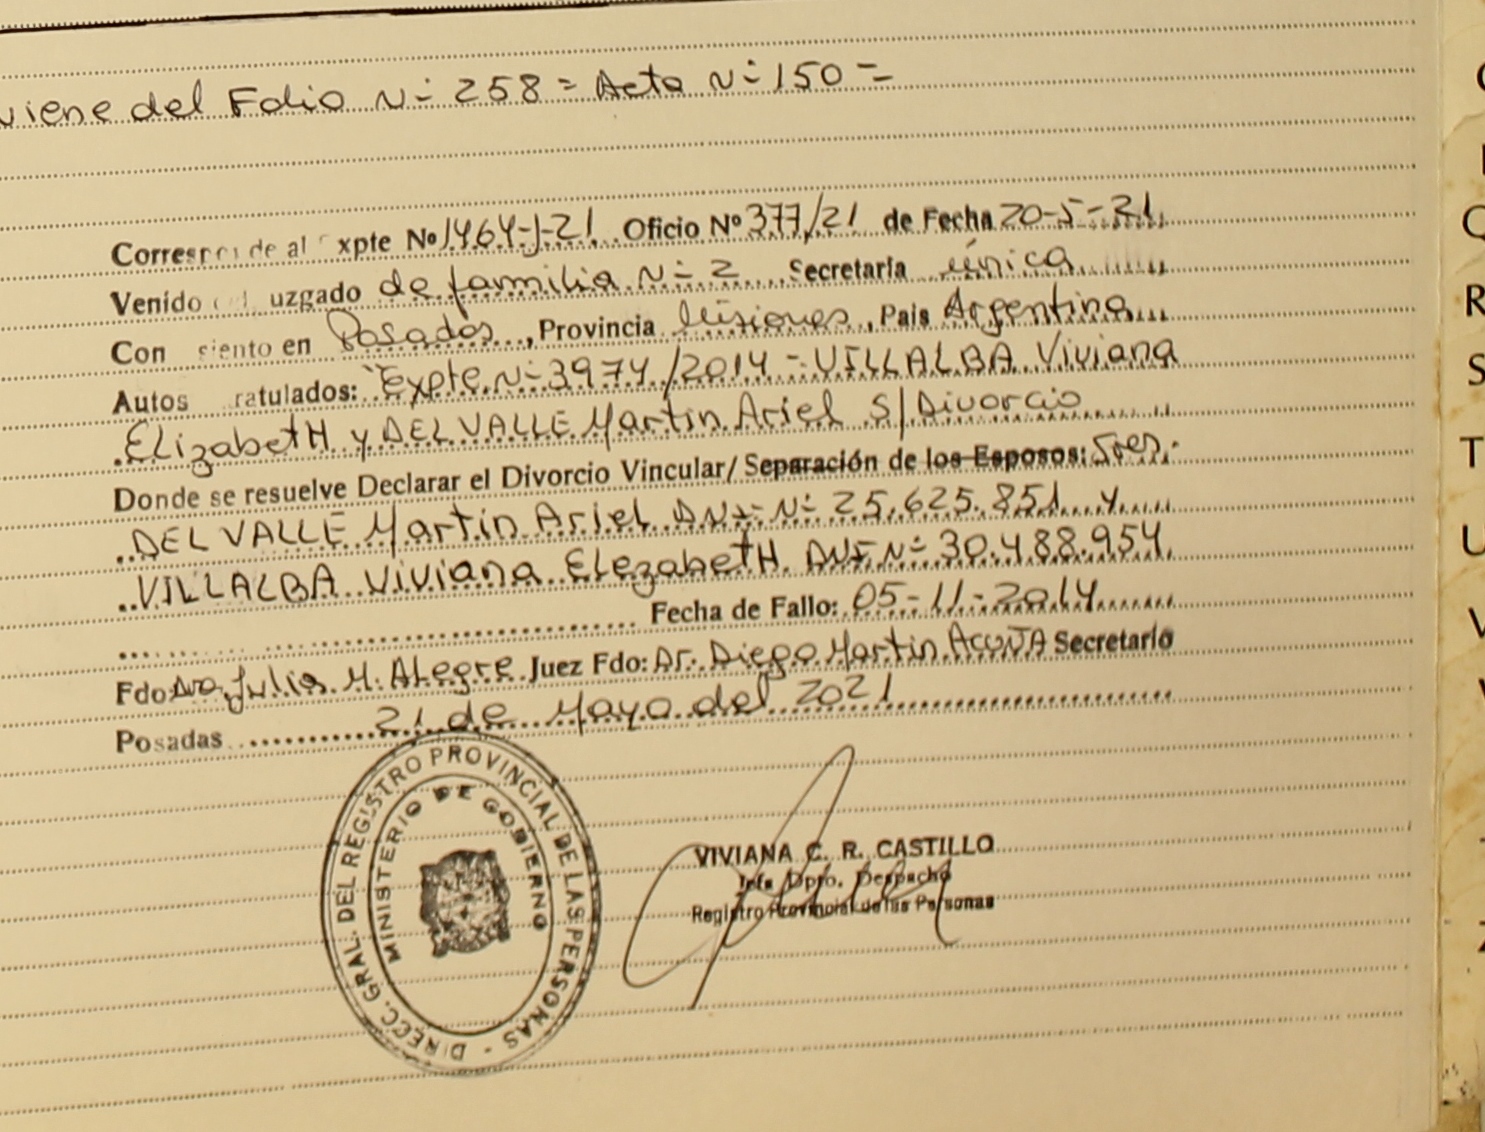 viene del Folio Nº 258 = Acta Nº 150 =
Corresponde al Expte Nº 1464-J-21 Oficio Nº 377/21 de Fecha 20-5-21
Venido del uzgado de familia Nº 2 Secretaria única
Con siento en Posadas, Provincia Misiones, Pais Argentina
Autos ratulados: "Expte. Nº 3974/2014 - VILLALBA Viviana
ElizabetH y DEL VALLE Martin Ariel S/Divorcio
Donde se resuelve Declarar el Divorcio Vincular/ Separación de los Esposos: Sres.
DEL VALLE Martin Ariel DNI Nº 25.625.851 y
VILLALBA Viviana ElezabetH DNI Nº 30.488.954
Fecha de Fallo: 05-11-2014
Fdo Dra. Julia M. Alegre Juez Fdo: Dr. Diego Martin Acuña Secretario
Posadas 21 de Mayo del 2021
DIRECC. GRAL. DEL REGISTRO PROVINCIAL DE LAS PERSONAS -
MINISTERIO DE GOBIERNO
VIVIANA C. R. CASTILLO
Jefa Dpto. Despacho
Registro Provincial de las Personas
Q
R
S
T
U
V